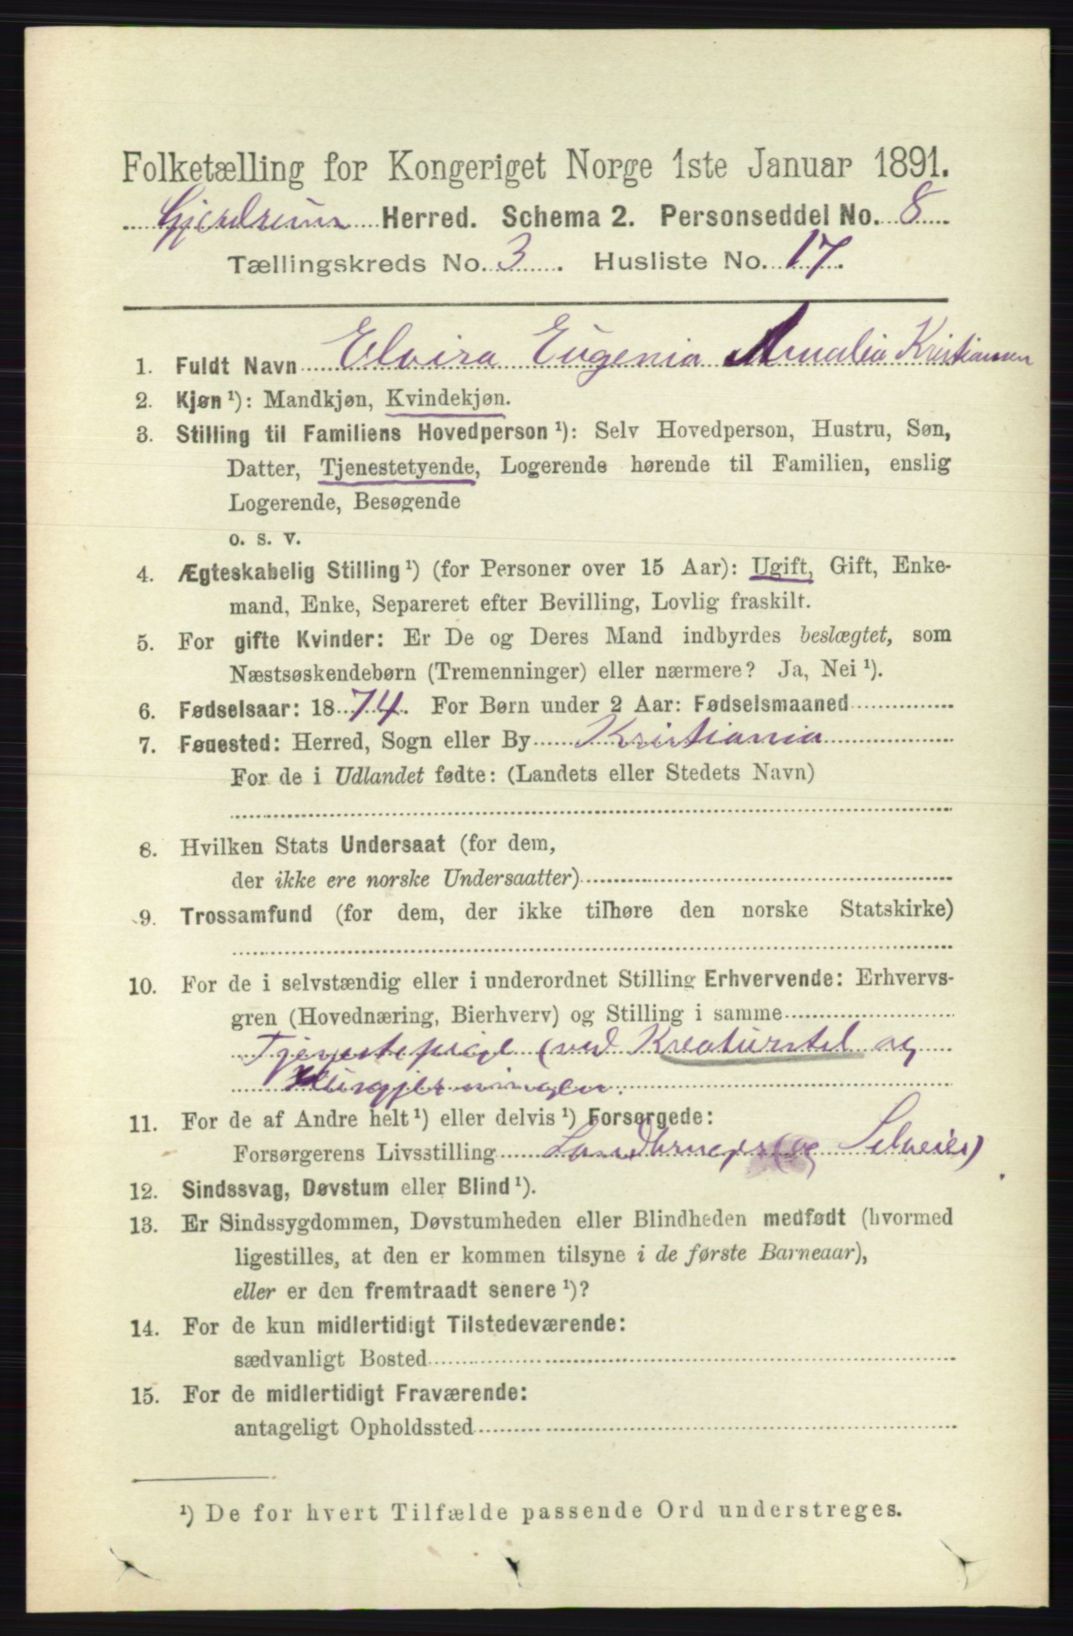 Folketælling for Kongeriget Norge 1ste Januar 1891.
Gjerdrum Herred. Schema 2. Personseddel No. 8
Tællingskreds No. 3. Husliste No. 17.
1. Fuldt Navn Elvira Eugenia Amalia Kristiansen
2. Kjøn ¹): Mandkjøn, Kvindekjøn.
3. Stilling til Familiens Hovedperson ¹): Selv Hovedperson, Hustru, Søn,
Datter, Tjenestetyende, Logerende hørende til Familien, enslig
Logerende, Besøgende
o. s. v.
4. Ægteskabelig Stilling ¹) (for Personer over 15 Aar): Ugift, Gift, Enke-
mand, Enke, Separeret efter Bevilling, Lovlig fraskilt.
5. For gifte Kvinder: Er De og Deres Mand indbyrdes beslægtet, som
Næstsøskendebørn (Tremenninger) eller nærmere? Ja, Nei ¹).
6. Fødselsaar: 1874. For Børn under 2 Aar: Fødselsmaaned
7. Fødested: Herred, Sogn eller By Kristiania
For de i Udlandet fødte: (Landets eller Stedets Navn)
8. Hvilken Stats Undersaat (for dem,
der ikke ere norske Undersaatter)
9. Trossamfund (for dem, der ikke tilhøre den norske Statskirke)
10. For de i selvstændig eller i underordnet Stilling Erhvervende: Erhvervs-
gren (Hovednæring, Bierhverv) og Stilling i samme
Tjenestepige (ved Kreaturstel og
Husgjerningen.
11. For de af Andre helt ¹) eller delvis ¹) Forsørgede:
Forsørgerens Livsstilling Landbruger (og Selveier)
12. Sindssvag, Døvstum eller Blind ¹).
13. Er Sindssygdommen, Døvstumheden eller Blindheden medfødt (hvormed
ligestilles, at den er kommen tilsyne i de første Barneaar),
eller er den fremtraadt senere ¹)?
14. For de kun midlertidigt Tilstedeværende:
sædvanligt Bosted
15. For de midlertidigt Fraværende:
antageligt Opholdssted
¹) De for hvert Tilfælde passende Ord understreges.